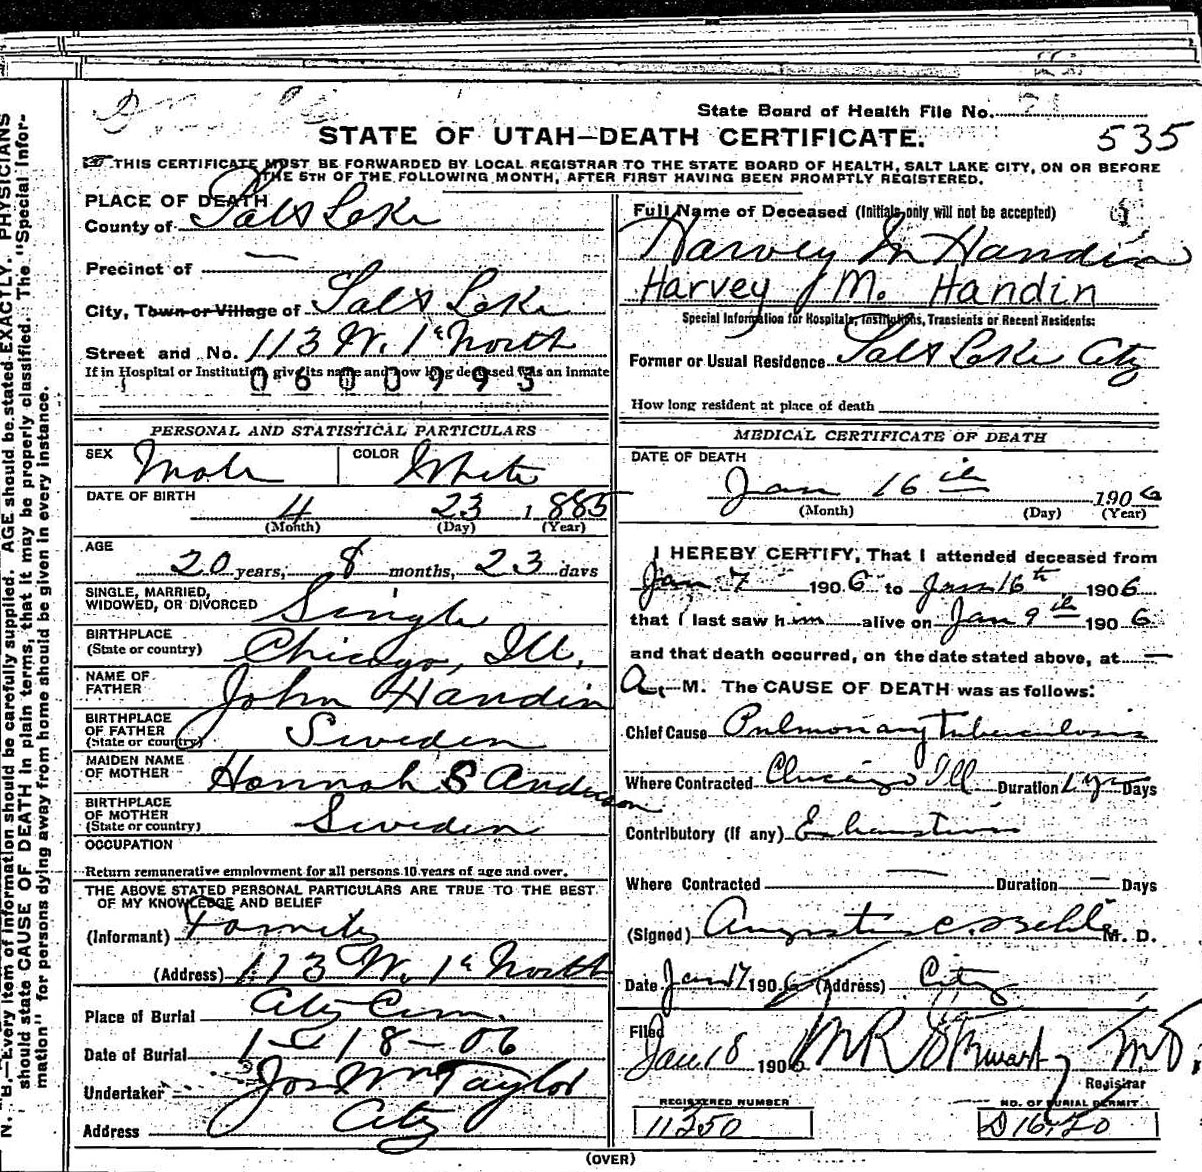 State Board of Health File No.
STATE OF UTAH—DEATH CERTIFICATE.
535
THIS CERTIFICATE MUST BE FORWARDED BY LOCAL REGISTRAR TO THE STATE BOARD OF HEALTH, SALT LAKE CITY, ON OR BEFORE
THE 5TH OF THE FOLLOWING MONTH, AFTER FIRST HAVING BEEN PROMPTLY REGISTERED.
PLACE OF DEATH
County of Salt Lake
Precinct of —
City, Town or Village of Salt Lake
Street and No. 113 W. 1st North
If in Hospital or Institution, give its name and how long deceased was an inmate
0600993
PERSONAL AND STATISTICAL PARTICULARS
SEX Male COLOR White
DATE OF BIRTH
4 23 1885
(Month) (Day) (Year)
AGE
20 years, 8 months, 23 days
SINGLE, MARRIED,
WIDOWED, OR DIVORCED Single
BIRTHPLACE
(State or country) Chicago, Ill,
NAME OF
FATHER John Handin
BIRTHPLACE
OF FATHER
(State or country) Sweden
MAIDEN NAME
OF MOTHER Hannah S Anderson
BIRTHPLACE
OF MOTHER
(State or country) Sweden
OCCUPATION
Return remunerative employment for all persons 10 years of age and over.
THE ABOVE STATED PERSONAL PARTICULARS ARE TRUE TO THE BEST
OF MY KNOWLEDGE AND BELIEF
(Informant) Family
(Address) 113 W. 1st North
Place of Burial City Cem.
Date of Burial 1-18-06
Undertaker Jos Wm Taylor
Address City
Full Name of Deceased (Initials only will not be accepted)
Harvey M Handin
Harvey M. Handin
Special Information for Hospitals, Institutions, Transients or Recent Residents:
Former or Usual Residence Salt Lake City
How long resident at place of death
MEDICAL CERTIFICATE OF DEATH
DATE OF DEATH
Jan 16th 1906
(Month) (Day) (Year)
I HEREBY CERTIFY, That I attended deceased from
Jan 7 1906 to Jan 16th 1906
that I last saw him alive on Jan 9th 1906
and that death occurred, on the date stated above, at —
A. M. The CAUSE OF DEATH was as follows:
Chief Cause Pulmonary tuberculosis
Where Contracted Chicago Ill Duration 1 yr Days
Contributory (If any) Exhaustion
Where Contracted — Duration — Days
(Signed) Augustus C. M. D.
Date Jan 17 1906 (Address) City
Filed
Jan. 18 1906 M R Stewart, M.D.
Registrar
REGISTERED NUMBER
11250
NO. OF BURIAL PERMIT
(OVER)
N. B.—Every item of information should be carefully supplied. AGE should be stated EXACTLY. PHYSICIANS
should state CAUSE OF DEATH in plain terms, that it may be properly classified. The "Special Infor-
mation" for persons dying away from home should be given in every instance.